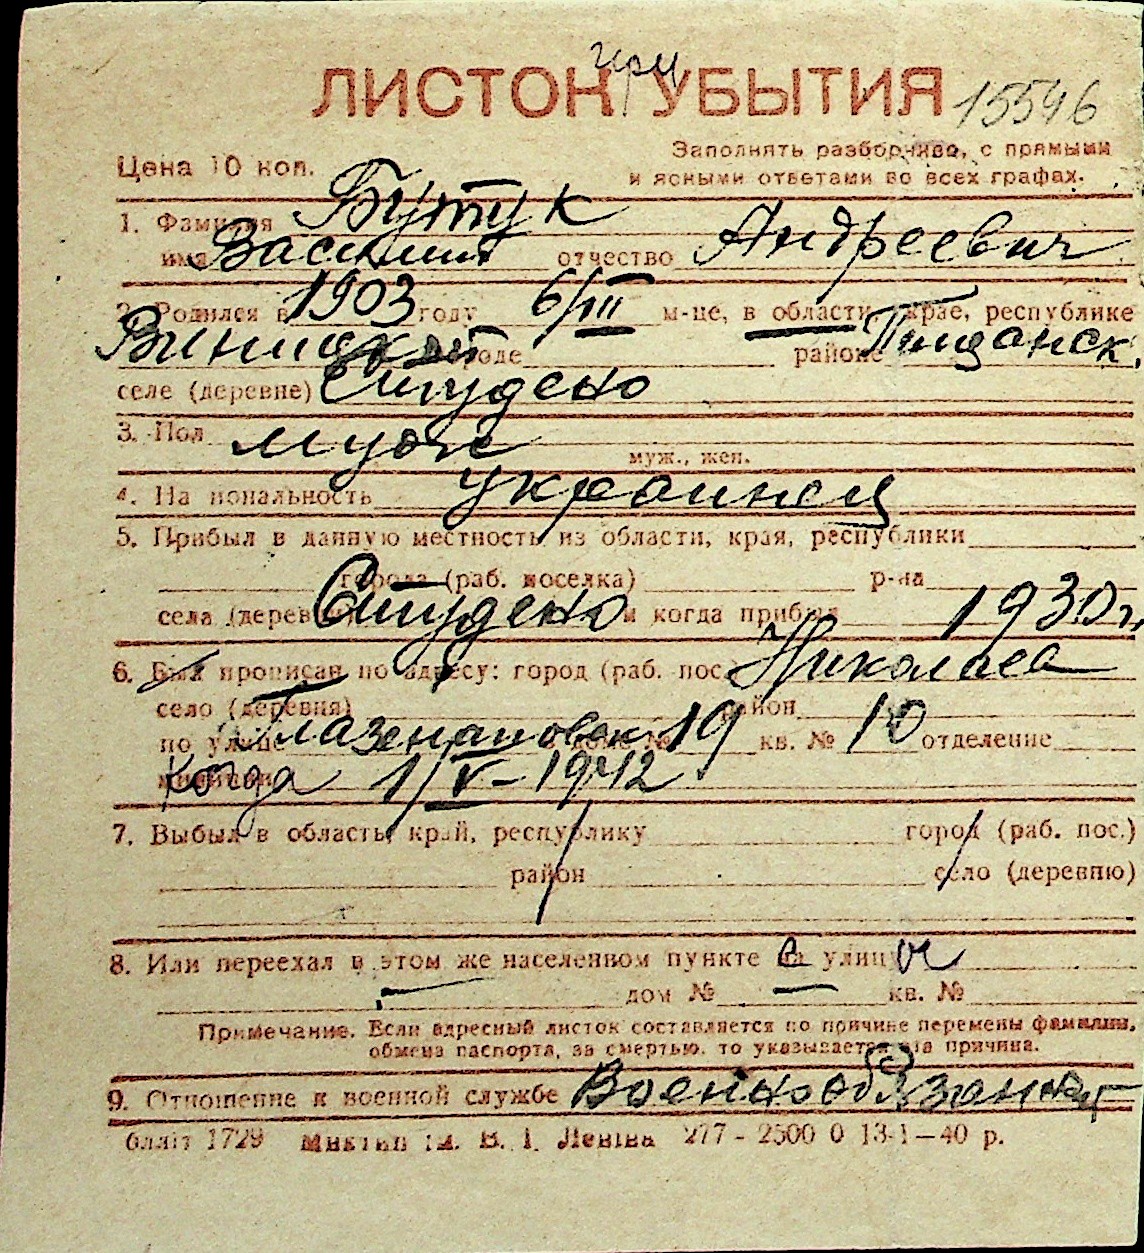 ЛИСТОК УБЫТИЯ
15596
Цена 10 коп.
Заполнять разборчиво, с прямыми
и ясными ответами во всех графах.
1. Фамилия Бутук
имя Василий отчество Андреевич
2. Родился в 1903 году 6/III м-це, в области, крае, республике
Виницкой городе районе Пищанск.
селе (деревне) Студено
3. Пол муж муж., жен.
4. Национальность украинец
5. Прибыл в данную местность из области, края, республики
города (раб. поселка) р-на
села (деревни) Студено и когда прибыл 1930 г.
6. Был прописан по адресу: город (раб. пос. Николаев
село (деревня) район
по улице Глазенаповск доме № 19 кв. № 10 отделение
милиции Когда 1/V-1942
7. Выбыл в область, край, республику город (раб. пос.)
район село (деревню)
8. Или переехал в этом же населенном пункте на улицу
— дом № — кв. №
Примечание. Если адресный листок составляется по причине перемены фамилии,
обмена паспорта, за смертью, то указывается эта причина.
9. Отношение к военной службе Военнообязанный
1729 им. В. І. Леніна 277 - 2500 0 13-1—40 р.